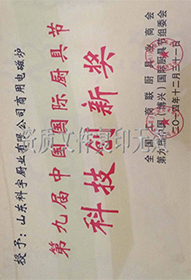 授予：山东科宇厨业有限公司商用电磁炉
第九届中国国际厨具节
科技创新奖
全国工商联厨具业商会
第九届中国（博兴）国际厨具节组委会
二〇一四年十二月三十一日